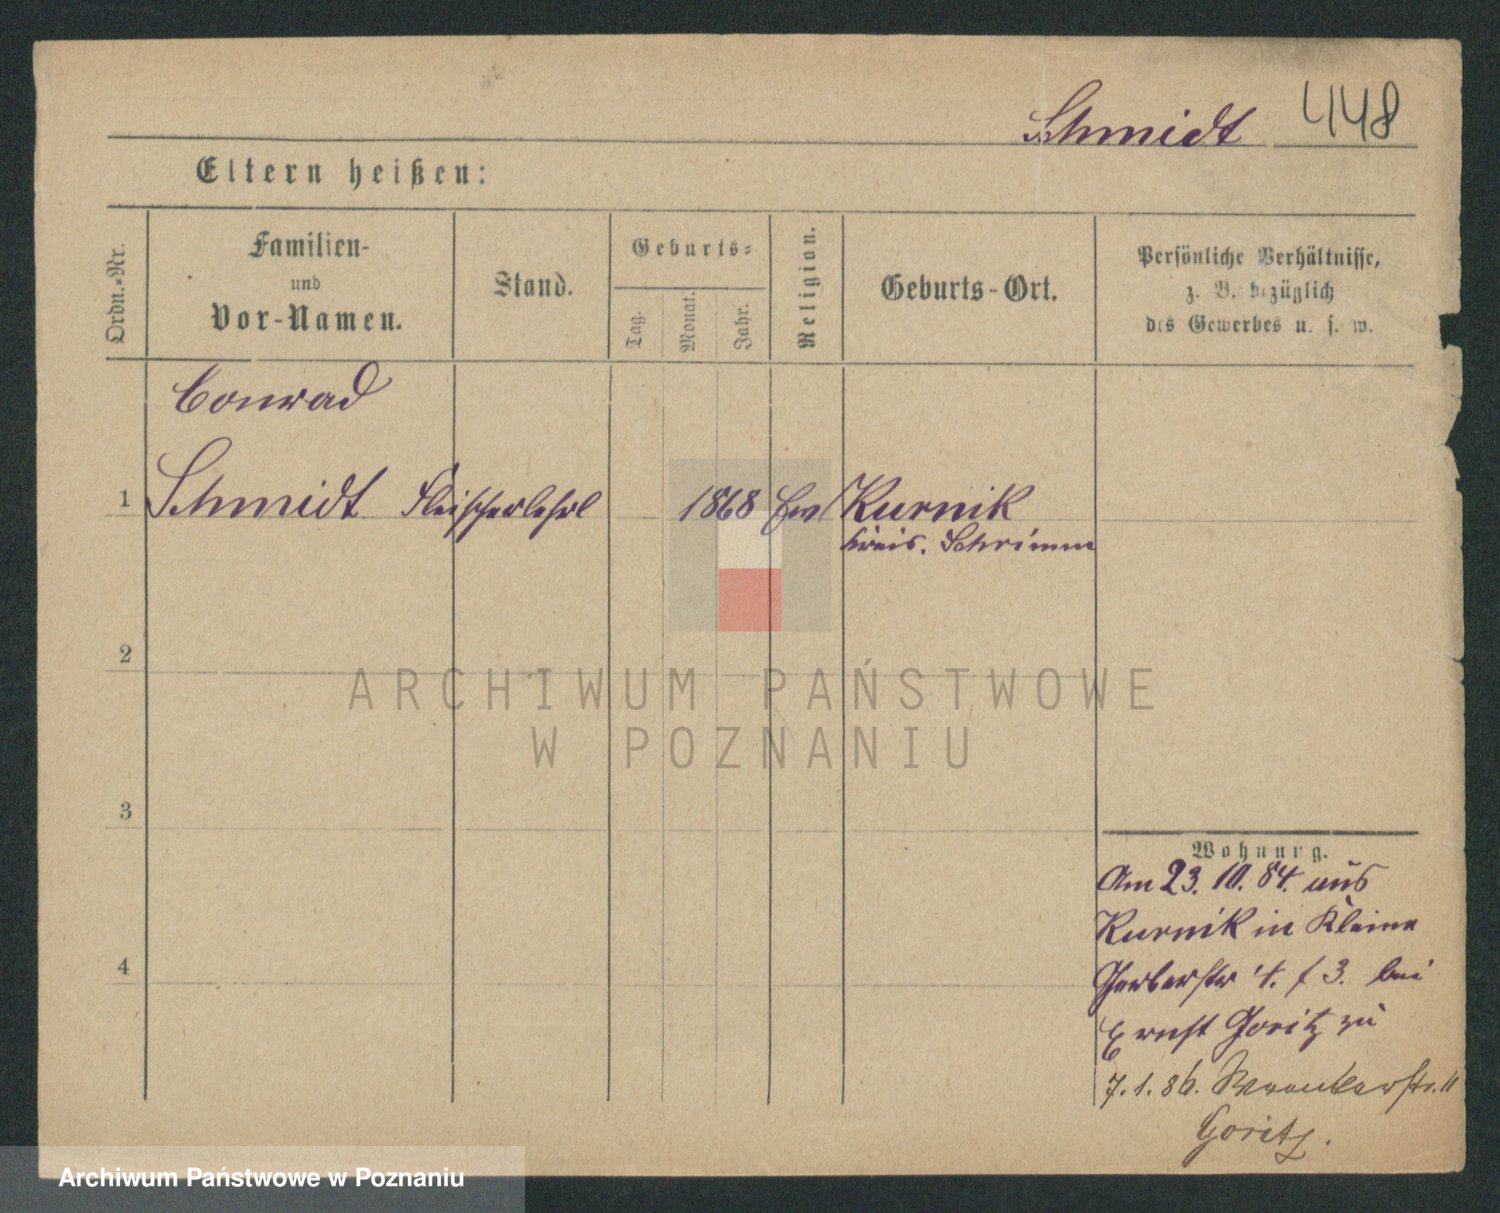 Schmidt 448
Eltern heißen:
Ordn.-Nr.
Familien-
und
Vor-Namen.
Stand.
Geburts-
Tag.
Monat.
Jahr.
Religion.
Geburts-Ort.
Persönliche Verhältnisse,
z. B. bezüglich
des Gewerbes u. s. w.
Conrad
1 Schmidt Fleischerlehrl 1868 Ev Kurnik
Kreis. Schrimm
2
3
4
Wohnung.
Am 23. 10. 84. aus
Kurnik in Kleine
Gerberstr 4. f 3. bei
Ernst Goritz zu
7. 1. 86. Wronkerstr. 11
Goritz.
ARCHIWUM PAŃSTWOWE
W POZNANIU
Archiwum Państwowe w Poznaniu